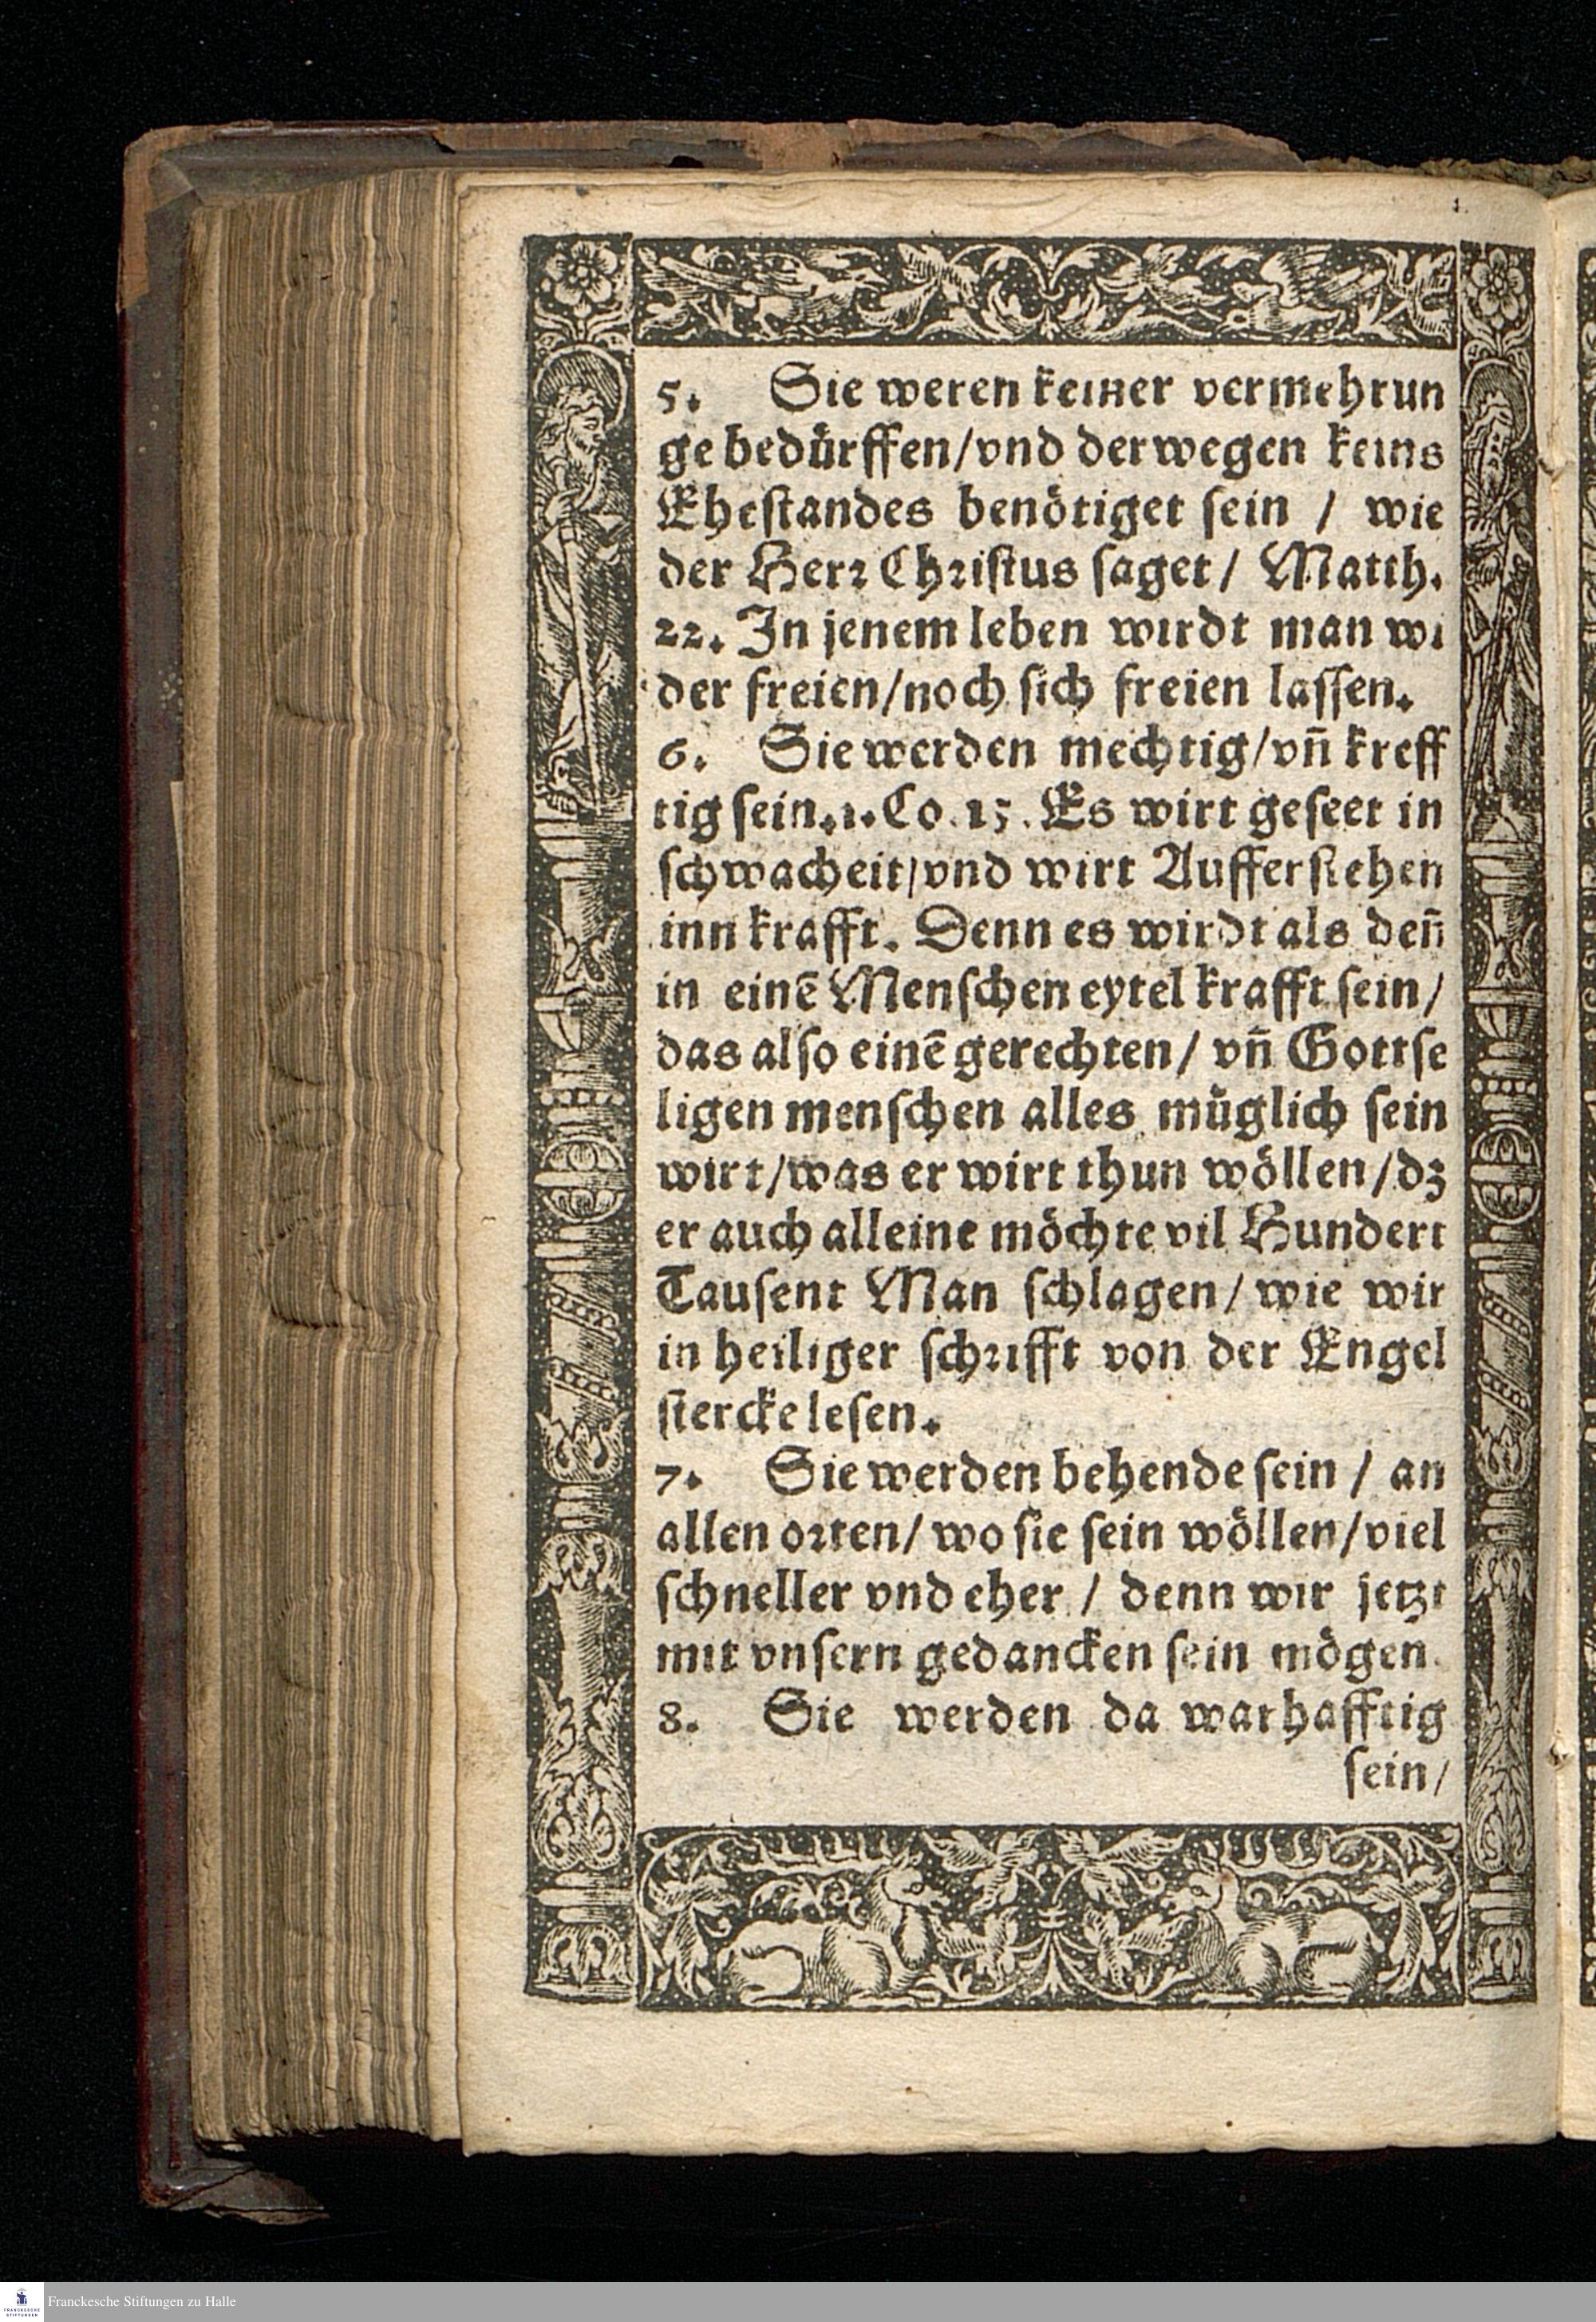 5. Sie weren keiner vermehrun
ge bedürffen/vnd derwegen keins
Ehestandes benötiget sein / wie
der Herr Christus saget/ Matth.
22. In jenem leben wirdt man wi
der freien/noch sich freien lassen.
6. Sie werden mechtig/vn̄ kreff
tig sein.1.Co.15. Es wirt geseet in
schwacheit/vnd wirt Aufferstehen
inn krafft. Denn es wirdt als den̄
in einē Menschen eytel krafft sein/
das also einē gerechten/ vn̄ Gottse
ligen menschen alles müglich sein
wirt/was er wirt thun wöllen/dz
er auch alleine möchte vil Hundert
Tausent Man schlagen/ wie wir
in heiliger schrifft von der Engel
stercke lesen.
7. Sie werden behende sein / an
allen orten/ wo sie sein wöllen/viel
schneller vnd eher / denn wir jetzt
mit vnsern gedancken sein mögen.
8. Sie werden da warhafftig
sein/
Franckesche Stiftungen zu Halle
FRANCKESCHE
STIFTUNGEN